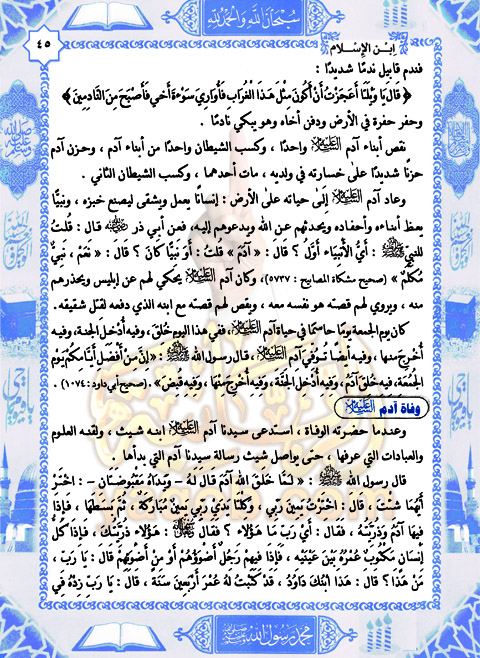 سُبْحَانَ اللَّهِ وَالْحَمْدُ لِلَّهِ
٤٥
اِبْنُ الإِسْلَام
فندم قابيل ندمًا شديدًا :
﴿ قَالَ يَا وَيْلَتَا أَعَجَزْتُ أَنْ أَكُونَ مِثْلَ هَذَا الْغُرَابِ فَأُوَارِيَ سَوْءَةَ أَخِي فَأَصْبَحَ مِنَ النَّادِمِينَ ﴾
وحفر حفرة في الأرض ودفن أخاه وهو يبكي نادمًا .
نقص أبناء آدم عليه السلام واحدًا ، وكسب الشيطان واحدًا من أبناء آدم ، وحزن آدم
حزنًا شديدًا على خسارته في ولديه ، مات أحدهما ، وكسب الشيطان الثاني .
وعاد آدم عليه السلام إِلَى حياته على الأرض : إنسانًا يعمل ويشقى ليصنع خبزه ، ونبيًّا
يعظ أبناءه وأحفاده ويحدثهم عن الله ويدعوهم إليه، فعن أبي ذر رضي الله عنه قال : قُلتُ
للنبي ﷺ : أَيُّ الأَنْبِيَاءِ أَوَّلُ ؟ قال : « آدَمُ » قُلتُ : أَوَ نَبِيًّا كَانَ ؟ قَالَ : « نَعَمْ ، نَبِيٌّ
مُكَلَّمٌ » (صحيح مشكاة المصابيح : ٥٧٣٧)، وكان آدم عليه السلام يحكي لهم عن إبليس ويحذرهم
منه ، ويروي لهم قصته هو نفسه معه ، ويقص لهم قصته مع ابنه الذي دفعه لقتل شقيقه.
كان يوم الجمعة يومًا حاسمًا في حياة آدم عليه السلام، ففي هذا اليوم خُلِقَ، وفيه أُدْخِلَ الجنة، وفيه
أُخْرِجَ منها ، وفيه أيضًا تُوُفِّيَ آدم عليه السلام، قال رسول الله ﷺ : «إِنَّ مِنْ أَفْضَلِ أَيَّامِكُمْ يَوْمَ
الجُمُعَةِ، فِيهِ خُلِقَ آدَمُ ، وَفِيهِ أُدْخِلَ الجَنَّةَ، وَفِيهِ أُخْرِجَ مِنْهَا ، وَفِيهِ قُبِضَ» . (صحيح أبي داود : ١٠٧٤)
وفاة آدم عليه السلام
وعندما حضرته الوفاة ، استدعى سيدنا آدم عليه السلام ابنه شيث ، ولقنه العلوم
والعبادات التي عرفها ، حتى يواصل شيث رسالة سيدنا آدم التي بدأها .
قال رسول الله ﷺ : « لَمَّا خَلَقَ اللهُ آدَمَ قَالَ لَهُ - وَيَدَاهُ مَقْبُوضَتَانِ - : اخْتَرْ
أَيَّهُمَا شِئْتَ ، قَالَ : اخْتَرْتُ يَمِينَ رَبِّي ، وَكِلْتَا يَدَيْ رَبِّي يَمِينٌ مُبَارَكَةٌ ، ثُمَّ بَسَطَهَا ، فَإِذَا
فِيهَا آدَمُ وَذُرِّيَّتُهُ ، فَقَالَ : أَيْ رَبِّ مَا هَؤُلَاءِ ؟ فَقَالَ : هَؤُلَاءِ ذُرِّيَّتُكَ ، فَإِذَا كُلُّ
إِنْسَانٍ مَكْتُوبٌ عُمْرُهُ بَيْنَ عَيْنَيْهِ ، فَإِذَا فِيهِمْ رَجُلٌ أَضْوَؤُهُمْ أَوْ مِنْ أَضْوَئِهِمْ قَالَ : يَا رَبِّ ،
مَنْ هَذَا ؟ قَالَ : هَذَا ابْنُكَ دَاوُدُ ، قَدْ كَتَبْتُ لَهُ عُمْرَ أَرْبَعِينَ سَنَةً ، قَالَ : يَا رَبِّ زِدْهُ فِي
محمد رسول الله ﷺ